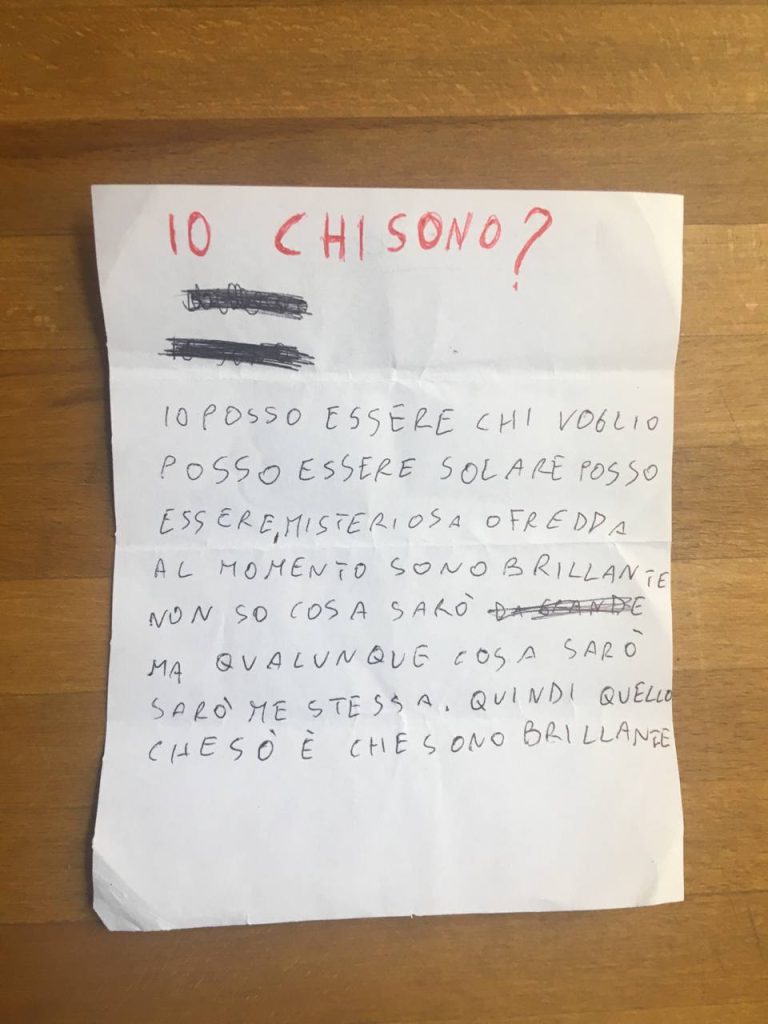 IO CHI SONO?
IO POSSO ESSERE CHI VOGLIO
POSSO ESSERE SOLARE POSSO
ESSERE, MISTERIOSA O FREDDA
AL MOMENTO SONO BRILLANTE
NON SO COSA SARÒ DA GRANDE
MA QUALUNQUE COSA SARÒ
SARÒ ME STESSA. QUINDI QUELLO
CHE SÒ È CHE SONO BRILLANTE